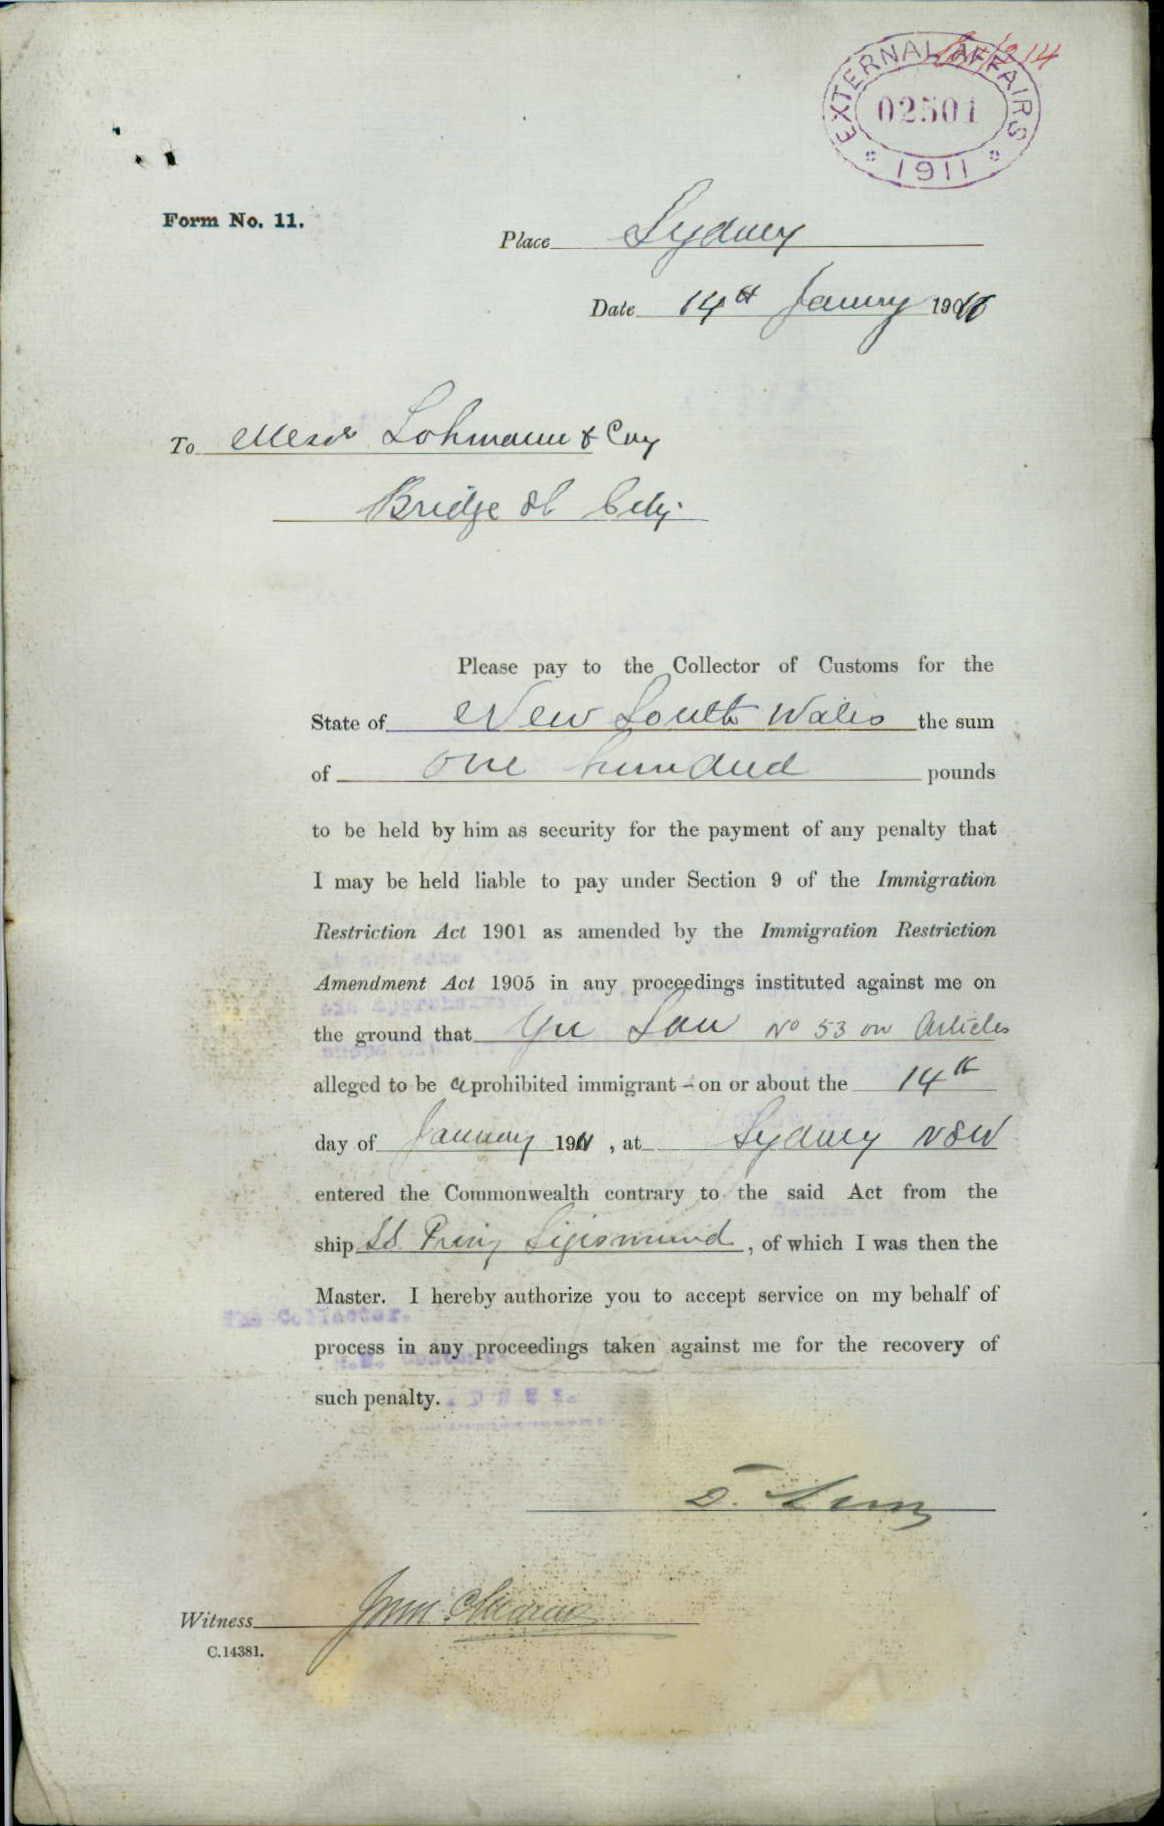 EXTERNAL AFFAIRS
02501
1911
Form No. 11.
Place Sydney
Date 14th January 19
To Messrs Lohmann & Coy
Bridge St City.
Please pay to the Collector of Customs for the
State of New South Wales the sum
of one hundred pounds
to be held by him as security for the payment of any penalty that
I may be held liable to pay under Section 9 of the Immigration
Restriction Act 1901 as amended by the Immigration Restriction
Amendment Act 1905 in any proceedings instituted against me on
the ground that Yee Lau No 53 on Articles
alleged to be a prohibited immigrant - on or about the 14th
day of January 1911, at Sydney NSW
entered the Commonwealth contrary to the said Act from the
ship SS. Prinz Sigismund, of which I was then the
Master. I hereby authorize you to accept service on my behalf of
process in any proceedings taken against me for the recovery of
such penalty.
Witness
C.14381.